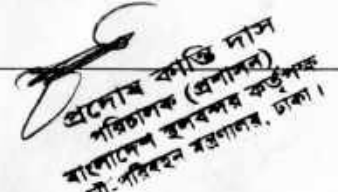 প্রদোষ কান্তি দাস
পরিচালক (প্রশাসন)
বাংলাদেশ স্থলবন্দর কর্তৃপক্ষ
নৌ-পরিবহন মন্ত্রণালয়, ঢাকা।